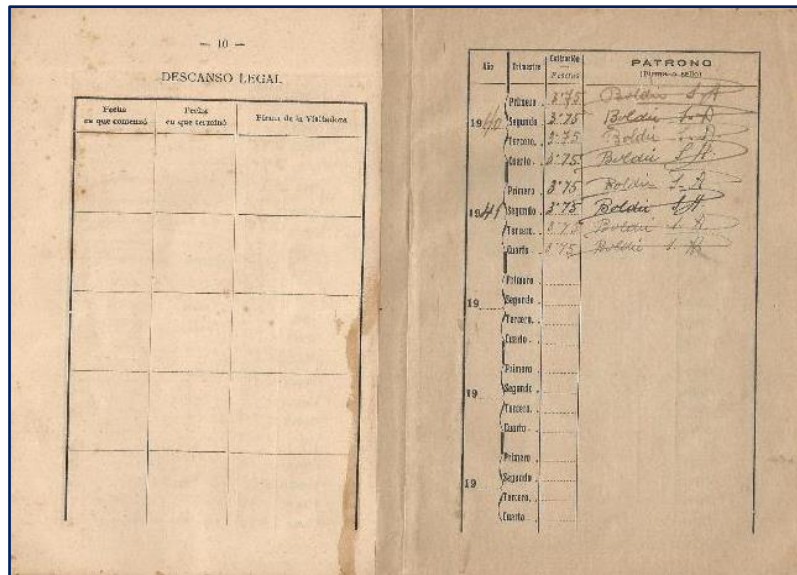 — 10 —
DESCANSO LEGAL
Fecha en que comenzó
Fecha en que terminó
Firma de la Visitadora
Año Trimestre Cotización Pesetas PATRONO (Firma o sello)
Primero . 3'75 Boldú S. A
1940 Segundo . 3'75 Boldú S. A
Tercero. . 3'75 Boldú S. A
Cuarto . . 3'75 Boldú S. A.
Primero . 3'75 Boldú S. A
1941 Segundo . 3'75 Boldú S. A
Tercero. . 3'75 Boldú S. A.
Cuarto . . 3'75 Boldú S. A.
Primero .
19 Segundo .
Tercero. .
Cuarto . .
Primero .
19 Segundo .
Tercero. .
Cuarto . .
Primero .
19 Segundo .
Tercero. .
Cuarto . .